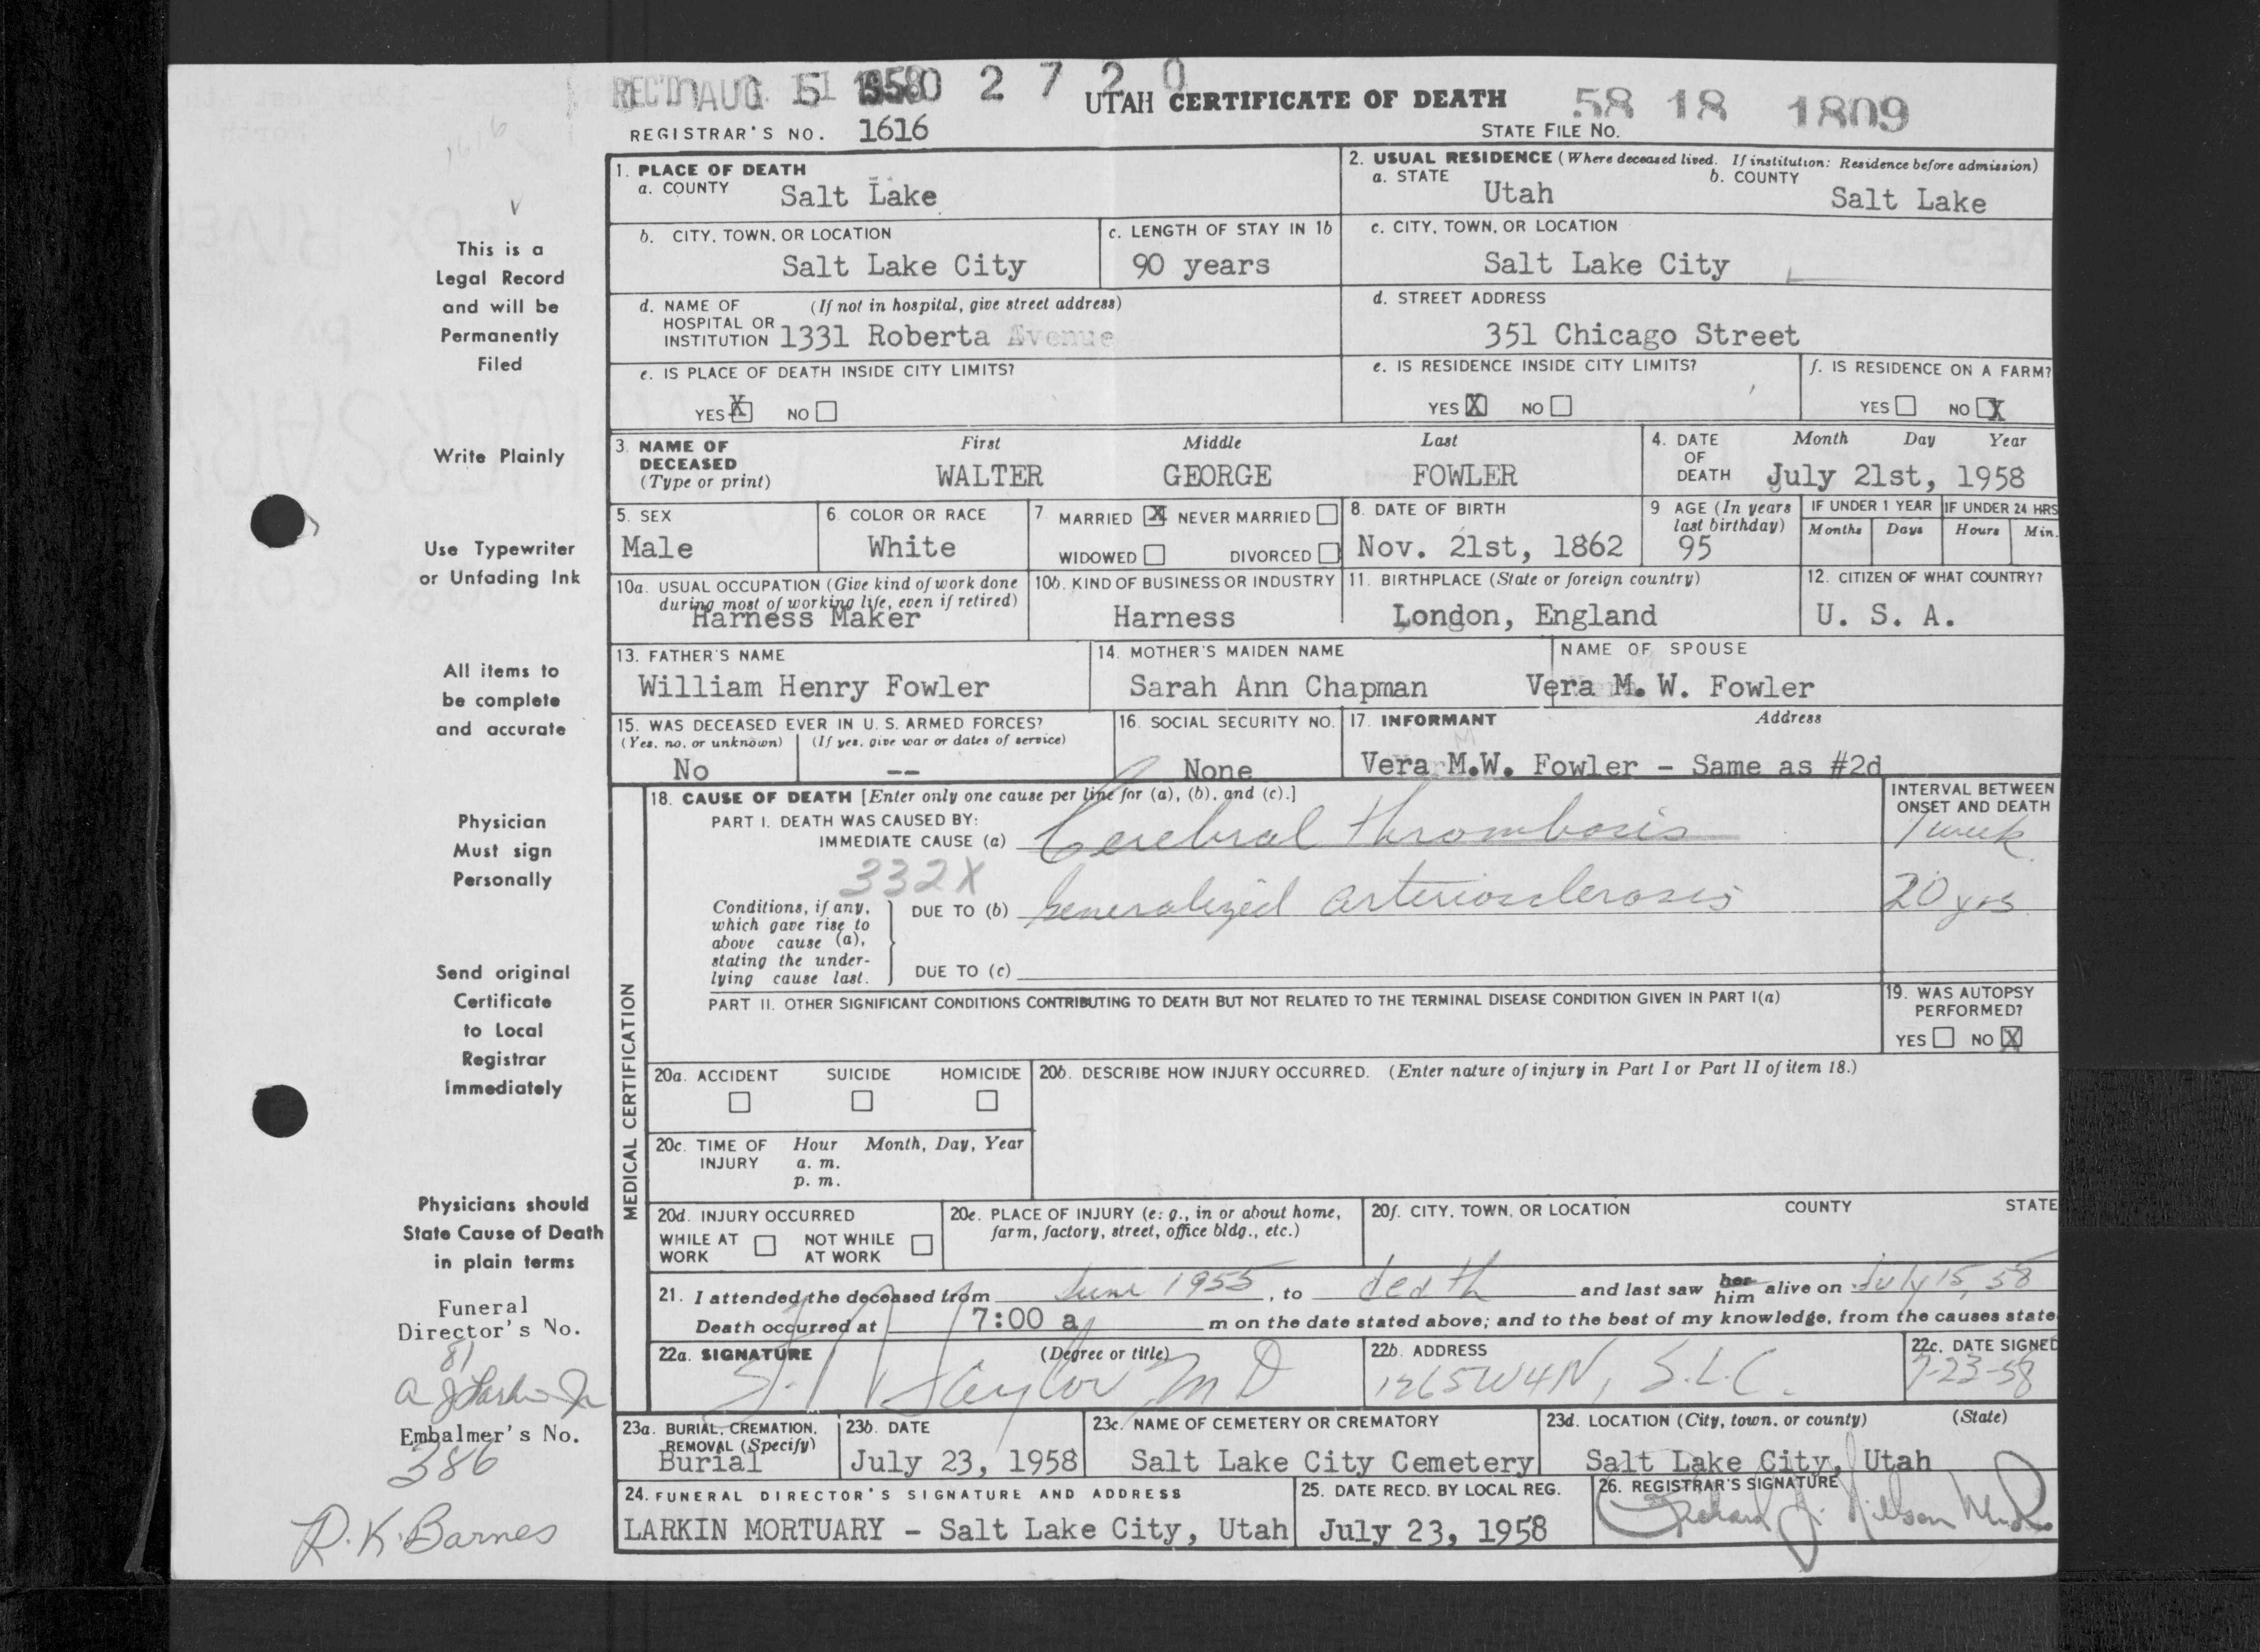 REC'D AUG 5 1958 0 2 7 2 0
UTAH CERTIFICATE OF DEATH 58 18 1809
REGISTRAR'S NO. 1616 STATE FILE No.
1. PLACE OF DEATH
a. COUNTY Salt Lake
2. USUAL RESIDENCE (Where deceased lived. If institution: Residence before admission)
a. STATE Utah b. COUNTY Salt Lake
b. CITY, TOWN, OR LOCATION Salt Lake City
c. LENGTH OF STAY IN 1b 90 years
c. CITY, TOWN, OR LOCATION Salt Lake City
d. NAME OF HOSPITAL OR INSTITUTION (If not in hospital, give street address) 1331 Roberta Avenue
d. STREET ADDRESS 351 Chicago Street
e. IS PLACE OF DEATH INSIDE CITY LIMITS?
YES X NO
e. IS RESIDENCE INSIDE CITY LIMITS?
YES X NO
f. IS RESIDENCE ON A FARM?
YES NO X
3. NAME OF DECEASED (Type or print)
First Middle Last
WALTER GEORGE FOWLER
4. DATE OF DEATH Month Day Year
July 21st, 1958
5. SEX Male
6. COLOR OR RACE White
7. MARRIED X NEVER MARRIED
WIDOWED DIVORCED
8. DATE OF BIRTH Nov. 21st, 1862
9 AGE (In years last birthday) 95
IF UNDER 1 YEAR Months Days
IF UNDER 24 HRS Hours Min.
10a. USUAL OCCUPATION (Give kind of work done during most of working life, even if retired)
Harness Maker
10b. KIND OF BUSINESS OR INDUSTRY Harness
11. BIRTHPLACE (State or foreign country) London, England
12. CITIZEN OF WHAT COUNTRY? U. S. A.
13. FATHER'S NAME William Henry Fowler
14. MOTHER'S MAIDEN NAME Sarah Ann Chapman
NAME OF SPOUSE Vera M. W. Fowler
15. WAS DECEASED EVER IN U. S. ARMED FORCES?
(Yes, no, or unknown) No
(If yes, give war or dates of service) --
16. SOCIAL SECURITY NO. None
17. INFORMANT Address
Vera M.W. Fowler - Same as #2d
MEDICAL CERTIFICATION
18. CAUSE OF DEATH [Enter only one cause per line for (a), (b), and (c).]
PART I. DEATH WAS CAUSED BY:
IMMEDIATE CAUSE (a) Cerebral thrombosis
INTERVAL BETWEEN ONSET AND DEATH
1 week
332X
Conditions, if any, which gave rise to above cause (a), stating the underlying cause last.
DUE TO (b) Generalized arteriosclerosis 20 yrs
DUE TO (c)
PART II. OTHER SIGNIFICANT CONDITIONS CONTRIBUTING TO DEATH BUT NOT RELATED TO THE TERMINAL DISEASE CONDITION GIVEN IN PART I(a)
19. WAS AUTOPSY PERFORMED?
YES NO X
20a. ACCIDENT SUICIDE HOMICIDE
20b. DESCRIBE HOW INJURY OCCURRED. (Enter nature of injury in Part I or Part II of item 18.)
20c. TIME OF INJURY Hour Month, Day, Year
a. m.
p. m.
20d. INJURY OCCURRED
WHILE AT WORK NOT WHILE AT WORK
20e. PLACE OF INJURY (e. g., in or about home, farm, factory, street, office bldg., etc.)
20f. CITY, TOWN, OR LOCATION COUNTY STATE
21. I attended the deceased from June 1955, to death and last saw her him alive on July 15, 58
Death occurred at 7:00 a m on the date stated above; and to the best of my knowledge, from the causes state
22a. SIGNATURE (Degree or title) Taylor M D
22b. ADDRESS 1265 W 4 N, S.L.C.
22c. DATE SIGNED 7-23-58
23a. BURIAL, CREMATION, REMOVAL (Specify) Burial
23b. DATE July 23, 1958
23c. NAME OF CEMETERY OR CREMATORY Salt Lake City Cemetery
23d. LOCATION (City, town, or county) (State)
Salt Lake City, Utah
24. FUNERAL DIRECTOR'S SIGNATURE AND ADDRESS
LARKIN MORTUARY - Salt Lake City, Utah
25. DATE RECD. BY LOCAL REG. July 23, 1958
26. REGISTRAR'S SIGNATURE
This is a
Legal Record
and will be
Permanently
Filed
Write Plainly
Use Typewriter
or Unfading Ink
All items to
be complete
and accurate
Physician
Must sign
Personally
Send original
Certificate
to Local
Registrar
Immediately
Physicians should
State Cause of Death
in plain terms
Funeral
Director's No.
81
Embalmer's No.
386
R. K. Barnes